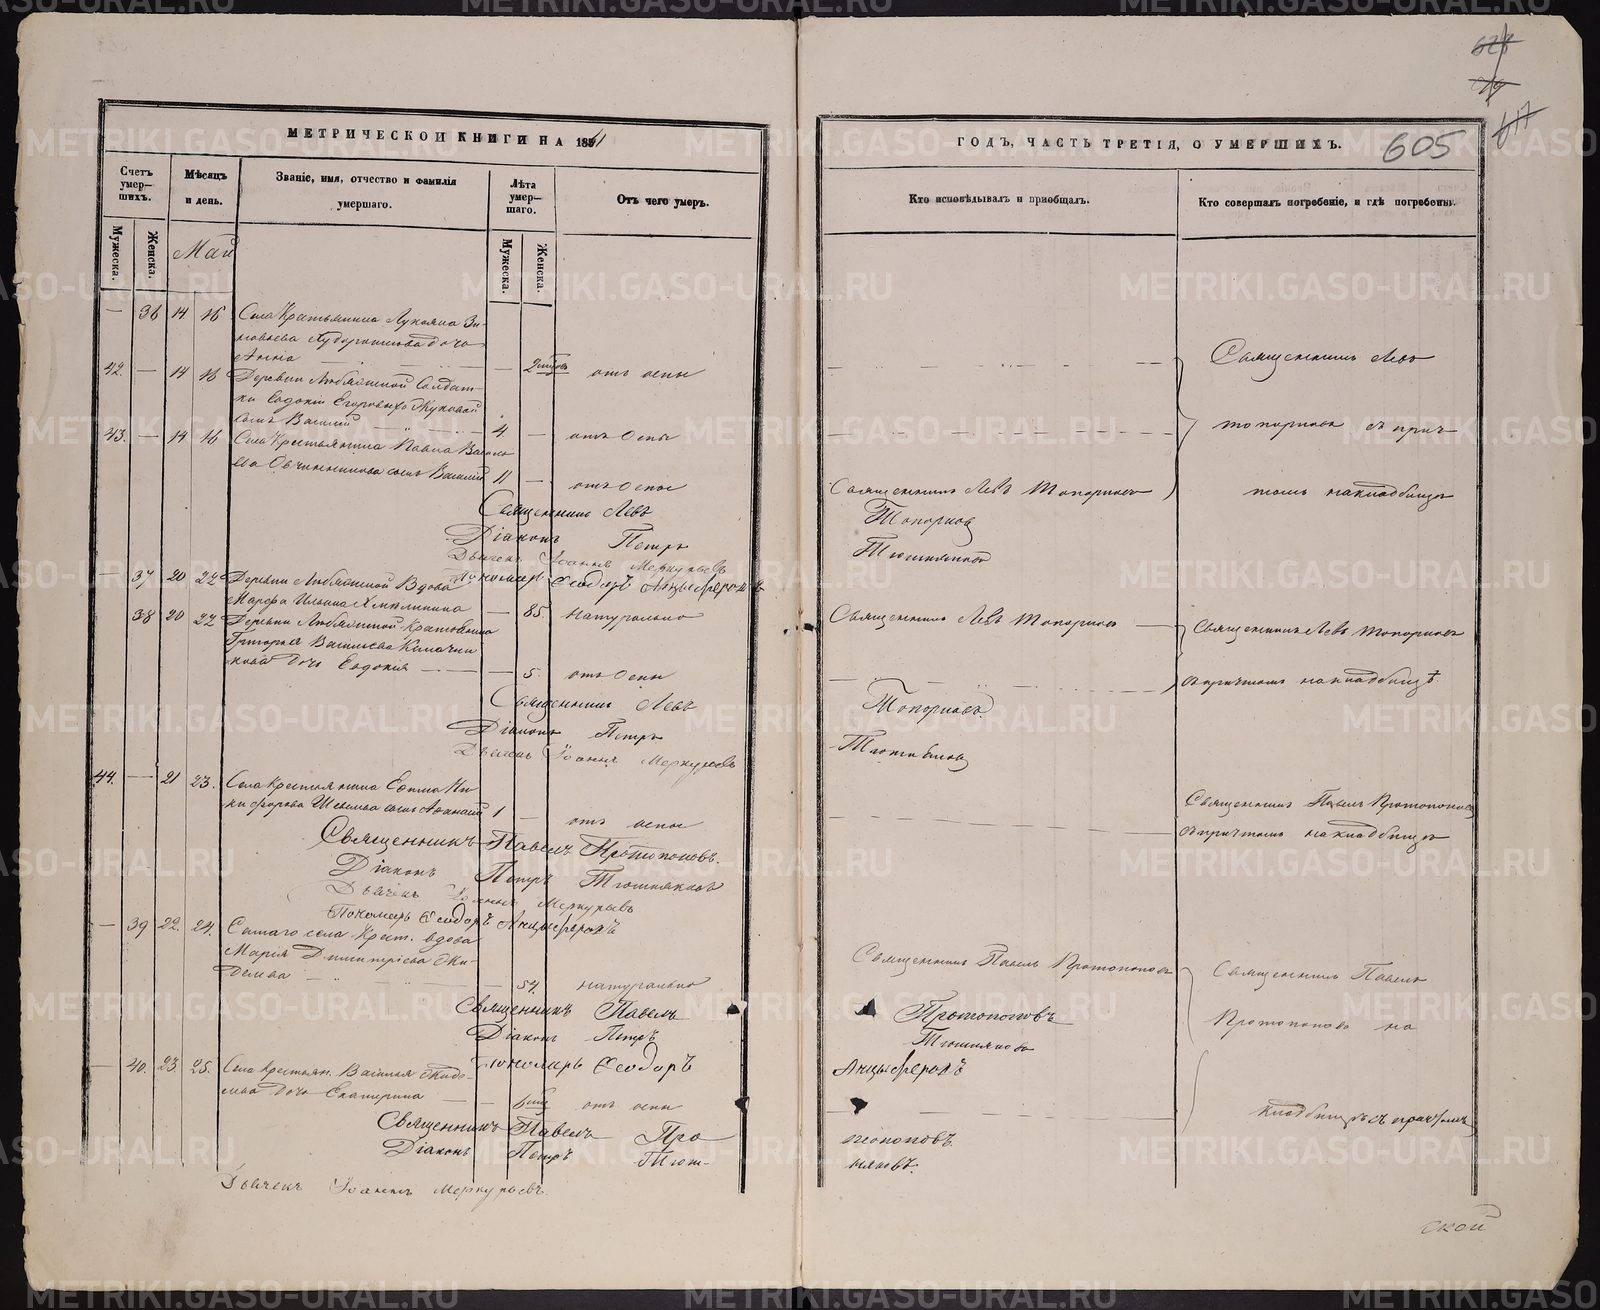 МЕТРИЧЕСКОЙ КНИГИ НА 1861
Счетъ умер—шихъ.
Мѣсяцъ и день.
Званіе, имя, отчество и фамилія умершаго.
Лѣта умер—шаго.
Отъ чего умеръ.
Мужеска.
Женска.
Мужеска.
Женска.
Май
— 36 14 16 Села Крестьянина Лукояна Зи-
новьева дочь
Анна — 2 отъ оспы
42. — 14 16 Деревни Любяжской Солдат-
ки Евдокіи Егоровой Жуковой
сынъ Василій 4. — отъ Оспы
43. — 14 16 Села Крестьянина Павла Василь
ева Овчинникова сынъ Василій 11 — отъ Оспы
Священникъ Левъ
Діаконъ Петръ
Дьячекъ Іоаннъ Меркурьевъ
Пономарь Ѳеодоръ Анцыферовъ
— 37 20 22 Деревни Любяжской Вдова
Марфа Ильина — 85. натурально
38 20 22 Деревни Любяжской Крестьянина
Григорья Васильева Калачни
кова дочь Евдокія — 5. отъ Оспы
Священникъ Левъ
Діаконъ Петръ
Дьячекъ Іоаннъ Меркурьевъ
44. — 21 23. Села Крестьянина Ефима Ни-
кифорова сынъ Афанасій 1 — отъ оспы
Священникъ Павелъ Протопоповъ.
Діаконъ Петръ Тюшняковъ
Дьячекъ Іоаннъ Меркурьевъ
Пономарь Ѳеодоръ Анцыферовъ
— 39 22. 24. Сегаго села Крест. вдова
Марія Димитріева
54. натурально
Священникъ Павелъ
Діаконъ Петръ
Пономарь Ѳеодоръ
— 40. 23. 25. Села Крестьян. Василья
дочь Екатерина — 6 отъ оспы
Священникъ Павелъ Про
Діаконъ Петръ Тюш-
Дьячекъ Іоаннъ Меркурьевъ.
ГОДЪ, ЧАСТЬ ТРЕТІЯ, О УМЕРШИХЪ.
605
Кто исповѣдывалъ и пріобщалъ.
Кто совершалъ погребеніе, и гдѣ погребены.
Священникъ Левъ
Топорковъ съ прич
томъ на кладбищѣ
Священникъ Левъ Топорковъ
Топорковъ
Тюшняковъ
Священникъ Левъ Топорковъ
Священникъ Левъ Топорковъ
съ причтомъ на кладбищѣ.
Топорковъ.
Тюшняковъ
Священникъ Павелъ Протопоповъ
съ причтомъ на кладбищѣ
Священникъ Павелъ Протопоповъ
Священникъ Павелъ
Протопоповъ на
Протопоповъ
Тюшняковъ
Анцыферовъ
кладбищѣ съ причтомъ
топоповъ
няковъ.
ской
METRIKI.GASO-URAL.RU